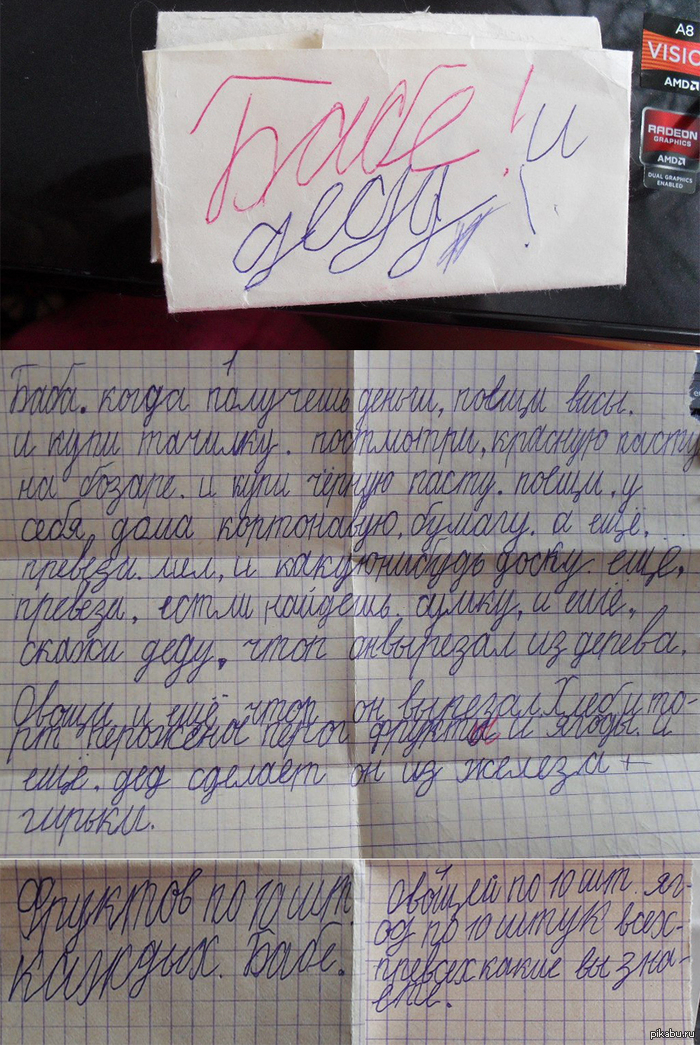 A8
VISIO
AMD
RADEON
GRAPHICS
AMD
DUAL GRAPHICS
ENABLED
Бабе! и
деду!
1
Баба. когда палучешь деньги, повищи висы.
и купи тачилку. постмотри, красную пасту
на бозаре. и купи чёрную пасту. поищи, у
себя, дома кортонавую, бумагу. а ещё,
превези. мел, и какуюнибудь доску. ещё,
превези, естли найдёшь. сумку, и ещё,
скажи деду, чтоп онвырезал из дерева.
Овощи и ещё чтоп он вырезал Хлеб и то-
рт пероженое перог фрукты и ягоды. и
ещё. дед сделает он из железа +
гирьки.
Фруктов по 10 шт.
каждых. Бабе.
Овощей по 10 шт. яг-
од по 10 штук всех-
превсех какие вы зна-
ете.
pikabu.ru